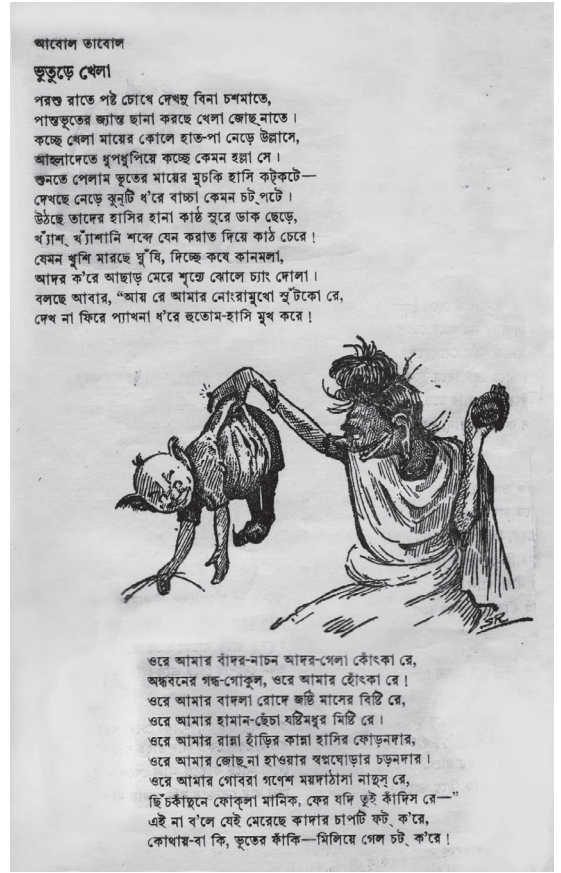 আবোল তাবোল
ভুতুড়ে খেলা
পরশু রাতে পষ্ট চোখে দেখনু বিনা চশমাতে,
পান্তভূতের জ্যান্ত ছানা করছে খেলা জোছ্‌নাতে।
কচ্ছে খেলা মায়ের কোলে হাত-পা নেড়ে উল্লাসে,
আহ্লাদেতে ধুপধুপিয়ে কচ্ছে কেমন হল্লা সে।
শুনতে পেলাম ভূতের মায়ের মুচকি হাসি কট্‌কটে—
দেখছে নেড়ে ঝুন্‌টি ধ'রে বাচ্চা কেমন চট্‌পটে।
উঠছে তাদের হাসির হানা কাষ্ঠ সুরে ডাক ছেড়ে,
খ্যাঁশ্‌ খ্যাঁশানি শব্দে যেন করাত দিয়ে কাঠ চেরে!
যেমন খুশি মারছে ঘুঁষি, দিচ্ছে কষে কানমলা,
আদর ক'রে আছাড় মেরে শূন্যে ঝোলে চ্যাং দোলা।
বলছে আবার, “আয় রে আমার নোংরামুখো সুঁটকো রে,
দেখ না ফিরে প্যাখনা ধ'রে হুতোম-হাসি মুখ করে!
SR
ওরে আমার বাঁদর-নাচন আদর-গেলা কোঁৎকা রে,
অন্ধবনের গন্ধ-গোকুল, ওরে আমার হোঁৎকা রে!
ওরে আমার বাদলা রোদে জষ্ঠি মাসের বিষ্টি রে,
ওরে আমার হামান-ছেঁচা যষ্টিমধুর মিষ্টি রে।
ওরে আমার রান্না হাঁড়ির কান্না হাসির ফোড়নদার,
ওরে আমার জোছ্‌না হাওয়ার স্বপ্নঘোড়ার চড়নদার।
ওরে আমার গোবরা গণেশ ময়দাঠাসা নাছুস্‌ রে,
ছিঁচকাঁদুনে ফোক্‌লা মানিক, ফের যদি তুই কাঁদিস রে—”
এই না ব'লে যেই মেরেছে কাদার চাপটি ফট্‌ ক'রে,
কোথায়-বা কি, ভূতের ফাঁকি—মিলিয়ে গেল চট্‌ ক'রে!